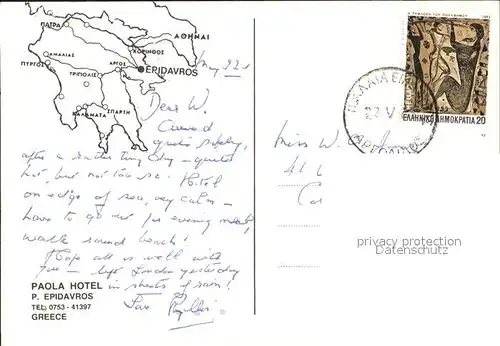 ΠΑΤΡΑ
ΑΘΗΝΑΙ
ΚΟΡΙΝΘΟΣ
ΑΜΑΛΙΑΣ
ΠΥΡΓΟΣ
ΑΡΓΟΣ
EPIDAVROS
ΤΡΙΠΟΛΙΣ
ΣΠΑΡΤΗ
ΚΑΛΑΜΑΤΑ
ΕΛΛΗΝΙΚΗ ΔΗΜΟΚΡΑΤΙΑ 20
May 22
Dear W.
quite safely,
after a rather day - quite
hot, but not too so. Hotel
on edge of sea, very calm -
have to go out for evening meal,
walk round beach!
Hope all is well with
you - left London yesterday
in sheets of rain!
Phyllis
Miss W.
41
privacy protection
Datenschutz
PAOLA HOTEL
P. EPIDAVROS
TEL: 0753 - 41397
GREECE